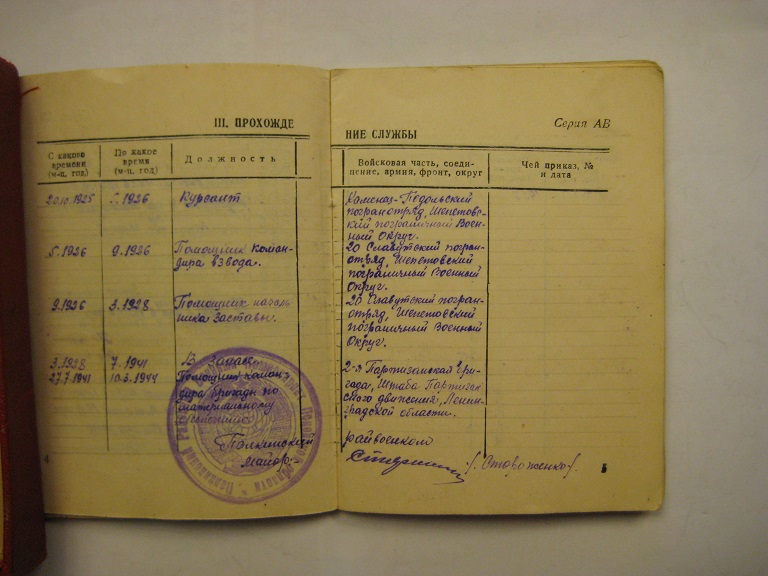 III. ПРОХОЖДЕ
НИЕ СЛУЖБЫ
Серия АВ
С какого
времени
(м-ц, год)
По какое
время
(м-ц, год)
Должность
Войсковая часть, соеди-
нение, армия, фронт, округ
Чей приказ, №
и дата
1925
1926
Курсант
Каменец-Подольский
погранотряд, Шепетов-
ский пограничный Воен-
ный Округ.
5.1926
9.1926
Помощник коман-
дира взвода.
20 Славутский погран-
отряд, Шепетовский
пограничный Военный
Округ.
9.1926
3.1928
Помощник началь
ника заставы.
20 Славутский погран-
отряд, Шепетовский
пограничный Военный
Округ.
3.1928
7.1941
В запасе
27.7.1941
10.3.1944
Помощник коман-
дира бригады по
материальному
2-я Партизанская Бри-
гада, Штаба Партизан
ского движения, Ленин-
градской области.
райвоенком
майор
/Стороженко/.
4
5